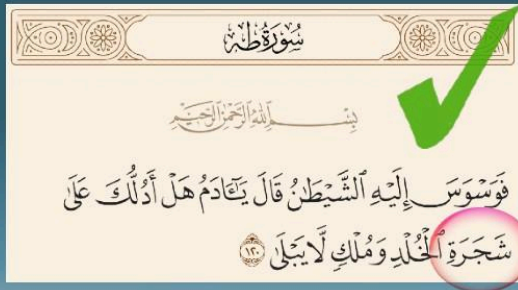 سُورَةُ طه
بِسْمِ اللَّهِ الرَّحْمَٰنِ الرَّحِيمِ
فَوَسْوَسَ إِلَيْهِ ٱلشَّيْطَٰنُ قَالَ يَٰٓـَٔادَمُ هَلْ أَدُلُّكَ عَلَىٰ
شَجَرَةِ ٱلْخُلْدِ وَمُلْكٍ لَّا يَبْلَىٰ ١٢٠